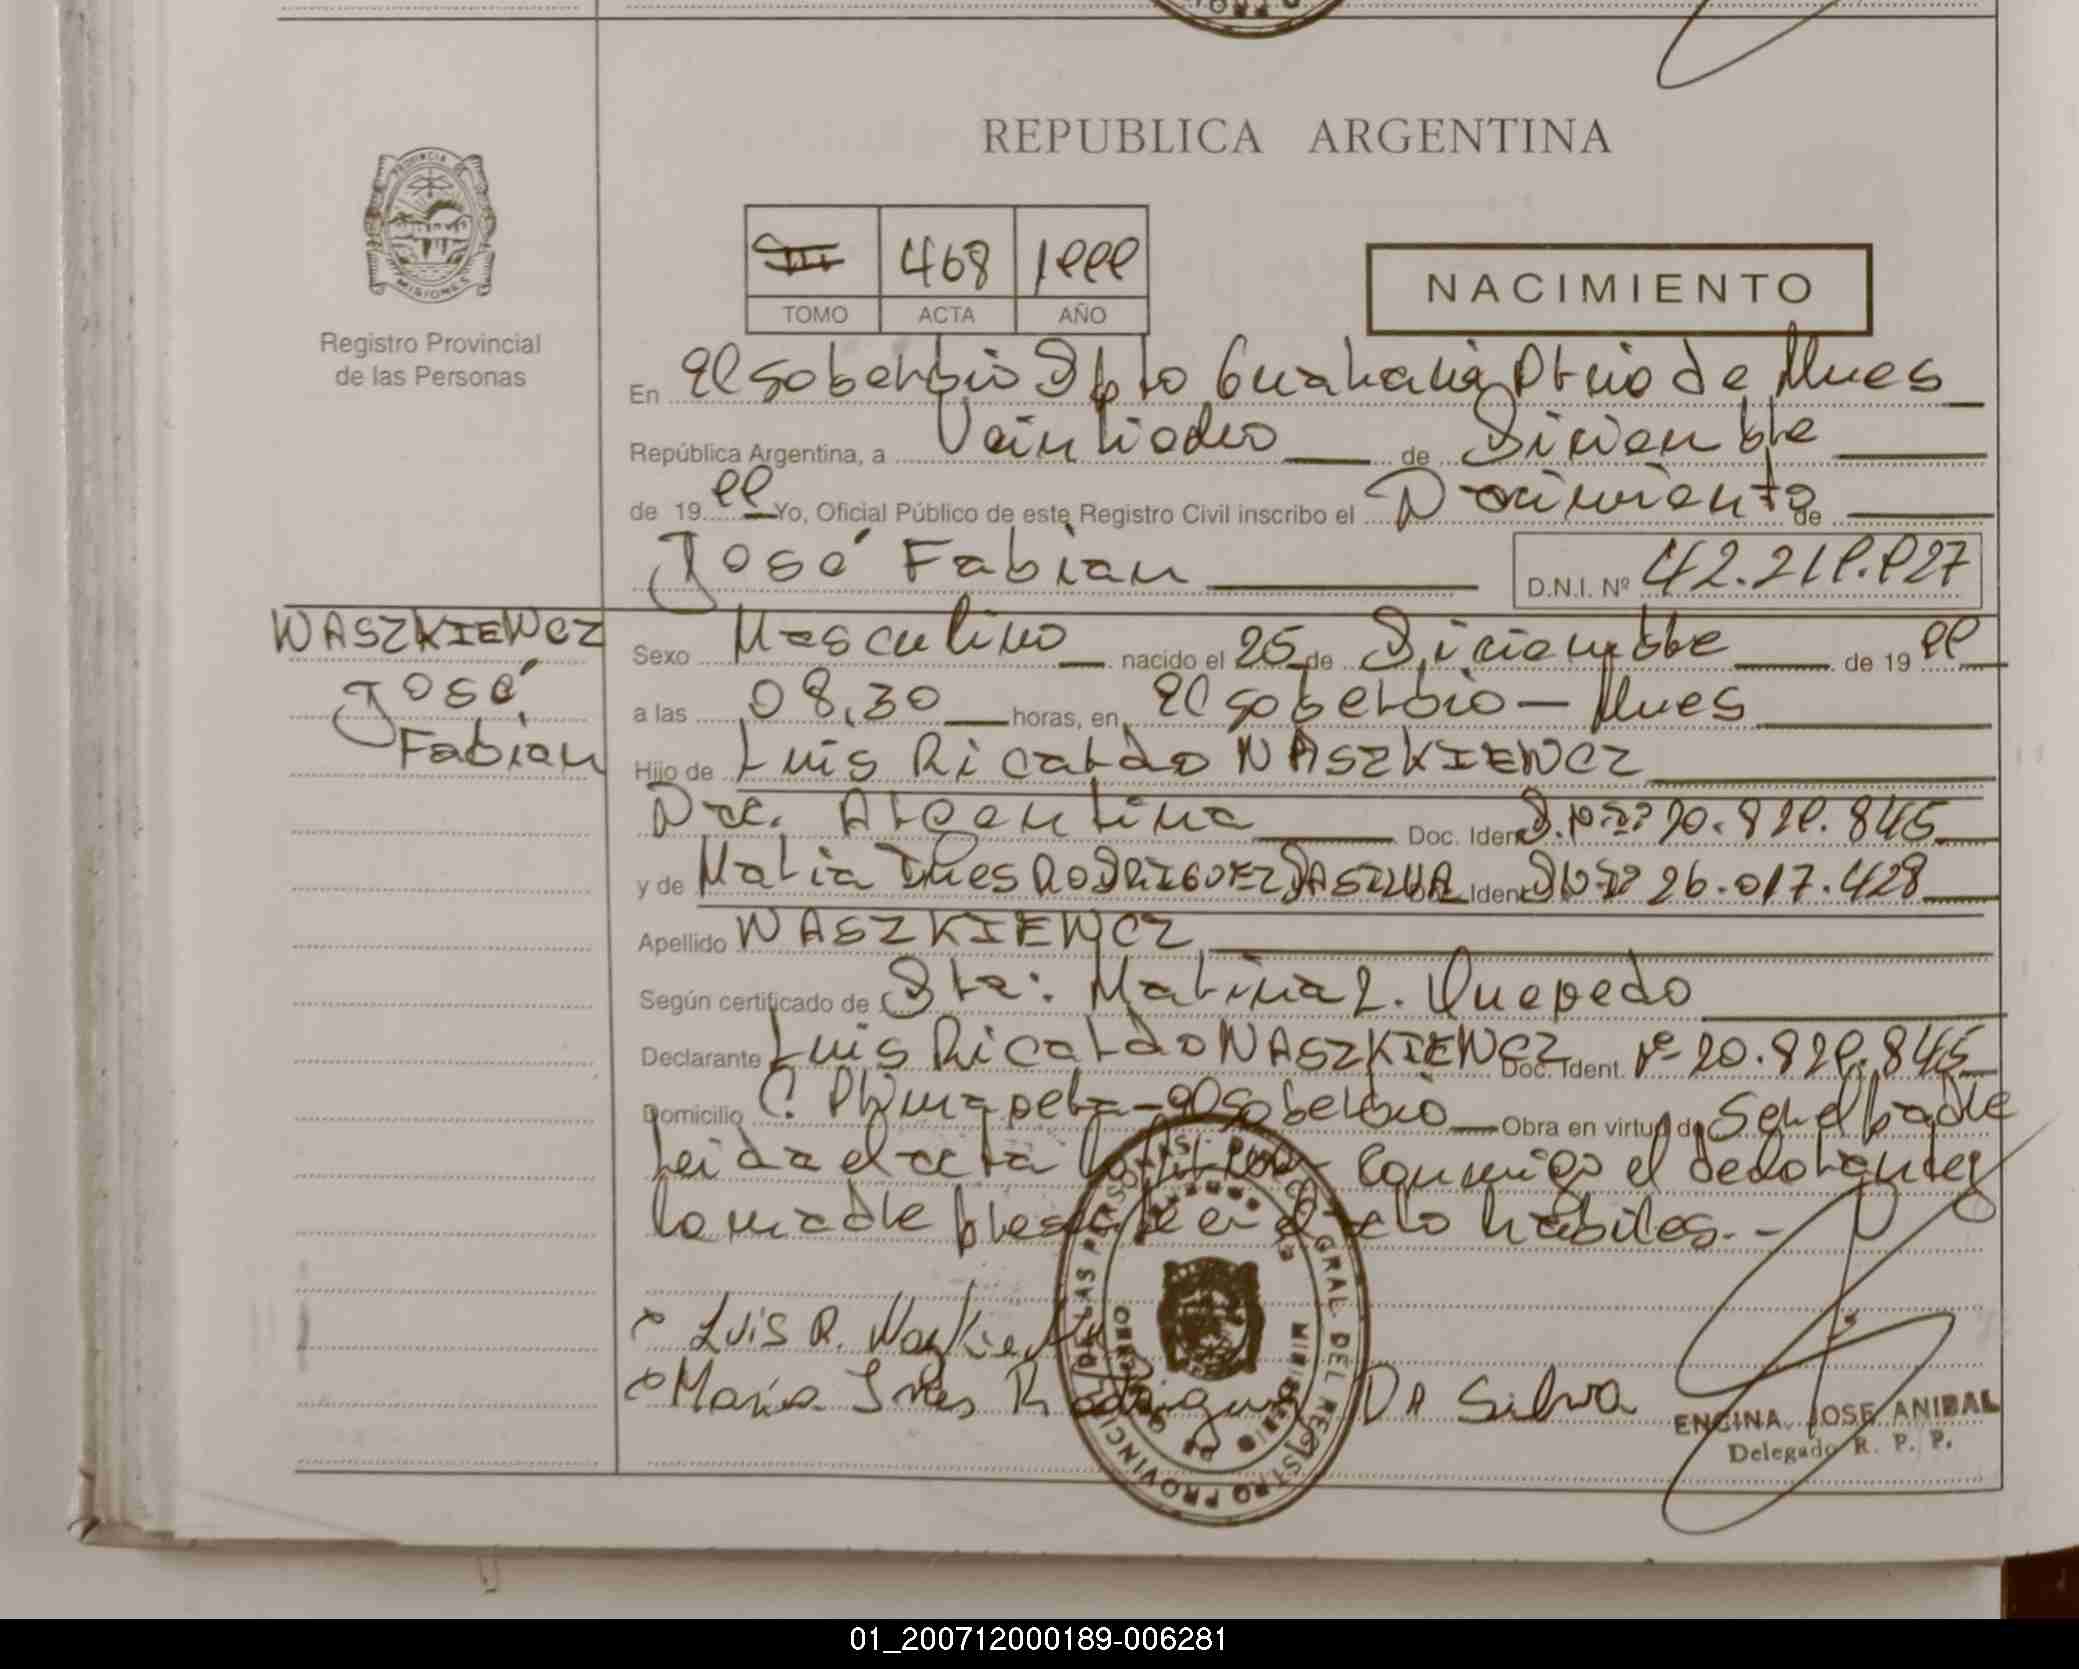 REPUBLICA ARGENTINA
PROVINCIA DE
MISIONES
Registro Provincial
de las Personas
III 468 1999
TOMO ACTA AÑO
NACIMIENTO
En El soberbio Dpto Guarania Pcia de Mnes
República Argentina, a Veintiocho de Diciembre
de 1999 Yo, Oficial Público de este Registro Civil inscribo el Nacimiento de
José Fabian D.N.I. Nº 42.219.927
WASZKIEWCZ
José
Fabian
Sexo Masculino nacido el 25 de Diciembre de 1999
a las 08,30 horas, en El soberbio - Mnes
Hijo de Luis Ricardo WASZKIEWCZ
Nac. Argentina Doc. Ident. D.N.I. 20.829.845
y de Maria Ines RODRIGUEZ DA SILVA Doc. Ident. DNI 26.017.428
Apellido WASZKIEWCZ
Según certificado de Sra: Marina L. Quevedo
Declarante Luis Ricardo WASZKIEWCZ Doc. Ident. Nº 20.829.845
Domicilio C. Primavera - El Soberbio Obra en virtud de Ser el padre
Leida el acta la firman conmigo el declarante y
la madre presente en el acto habiles. -
Luis R.
Maria Ines Rodriguez Da Silva
ENCINA JOSE ANIBAL
Delegado R. P. P.
GRAL. DEL REGISTRO PROVINCIAL DE LAS PERSONAS
MINISTERIO DE GOBIERNO
01_200712000189-006281